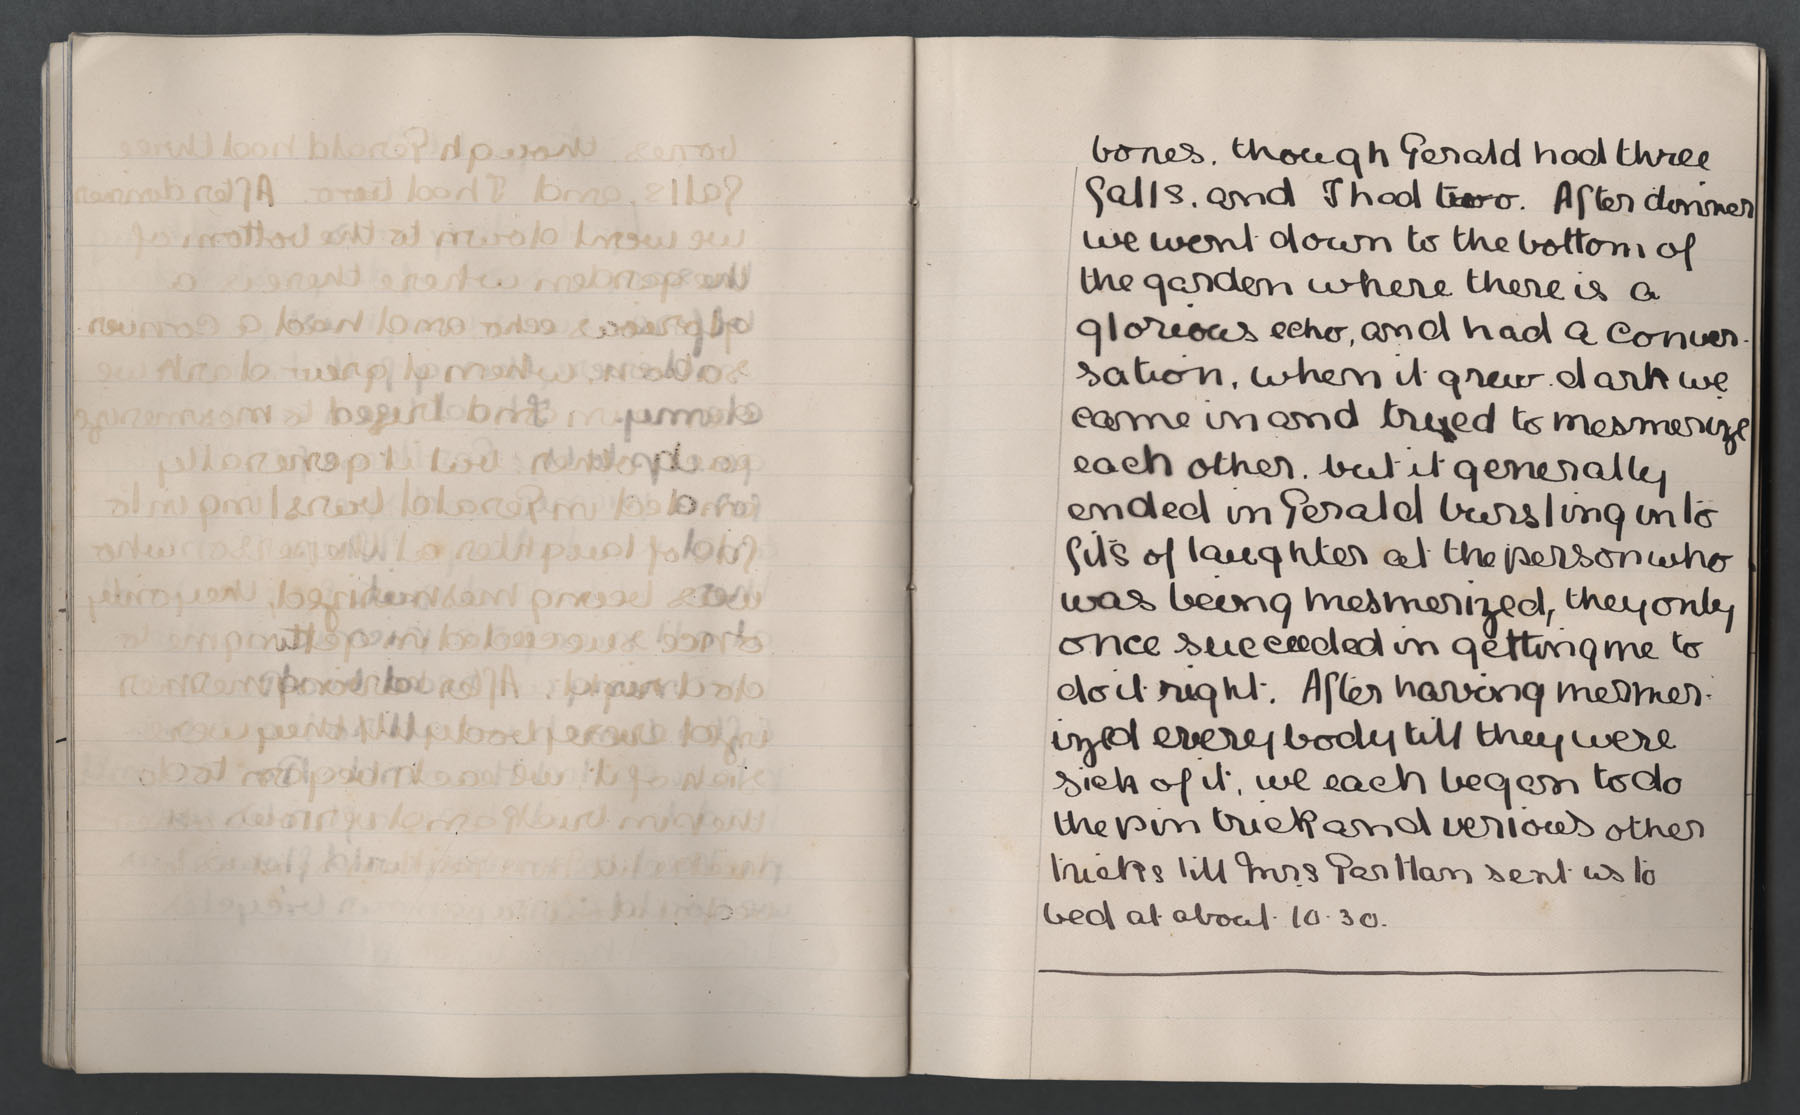 bones, though Gerald had three
falls, and I had two. After dinner
we went down to the bottom of
the garden where there is a
glorious echo, and had a conver-
sation, when it grew dark we
came in and tryed to mesmerize
each other, but it generally
ended in Gerald bursting into
fits of laughter at the person who
was being mesmerized, they only
once succeeded in getting me to
do it right. After having mesmer-
ized everybody till they were
sick of it, we each began to do
the pin trick and verious other
tricks till Mrs sent us to
bed at about 10.30.